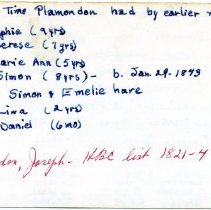 Time Plamondon had by earlier
phie (9yrs)
erese (7yrs)
arie Ann (5yrs)
Simon (8yrs) - b. Jan. 29. 1843
Simon & Emelie hare
Lina (2yrs)
Daniel (6mo)
don, Joseph - HBC list 1821-4